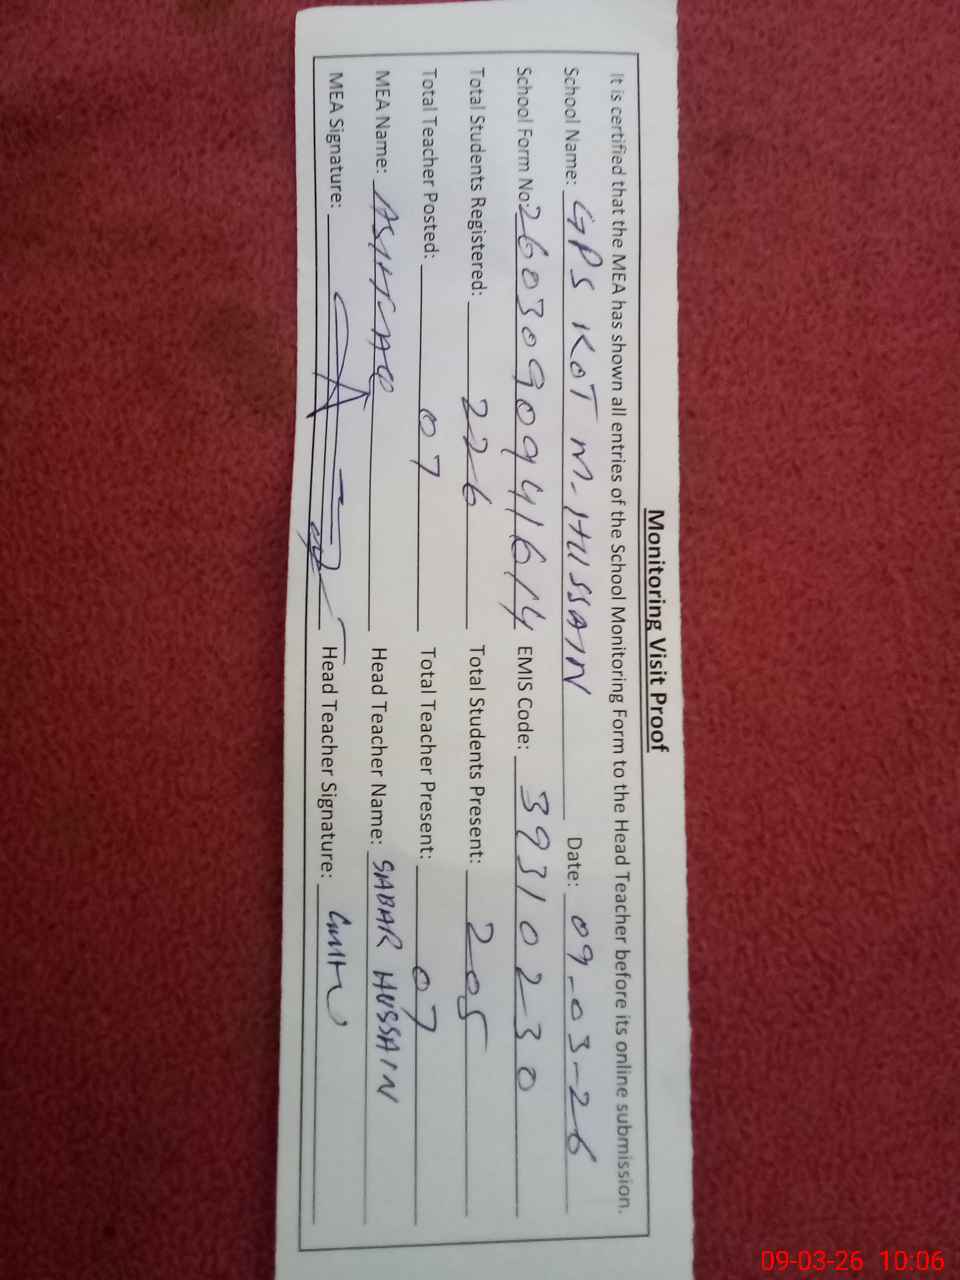 Monitoring Visit Proof
It is certified that the MEA has shown all entries of the School Monitoring Form to the Head Teacher before its online submission.
School Name: GPS KOT M-HUSSAIN Date: 09-03-26
School Form No: 2603090941614 EMIS Code: 39310230
Total Students Registered: 226 Total Students Present: 205
Total Teacher Posted: 07 Total Teacher Present: 07
MEA Name: ASHFAQ Head Teacher Name: SABAR HUSSAIN
MEA Signature: Head Teacher Signature:
09-03-26 10:06